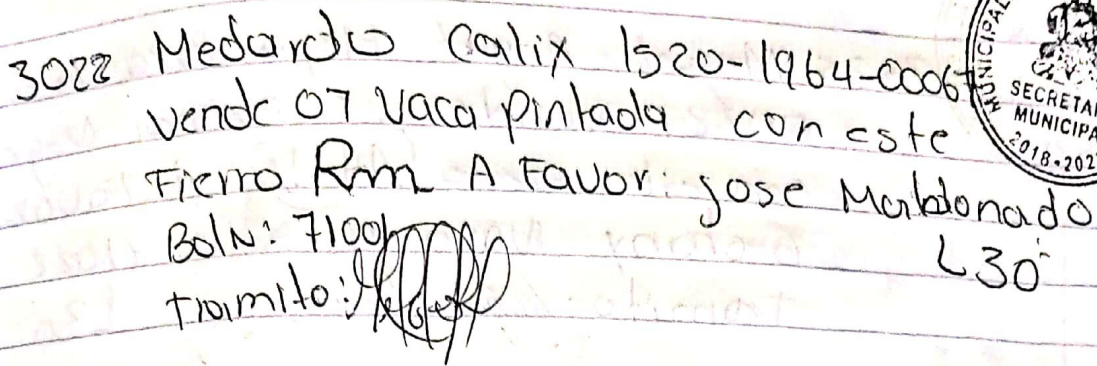 3022 Medardo Calix 1520-1964-0006
vende 07 Vaca pintada con este
Fierro Rm A Favor: jose Maldonado
Bol N: 7100
L30
tramito:
MUNICIPAL
SECRETA
MUNICIPA
2018-202